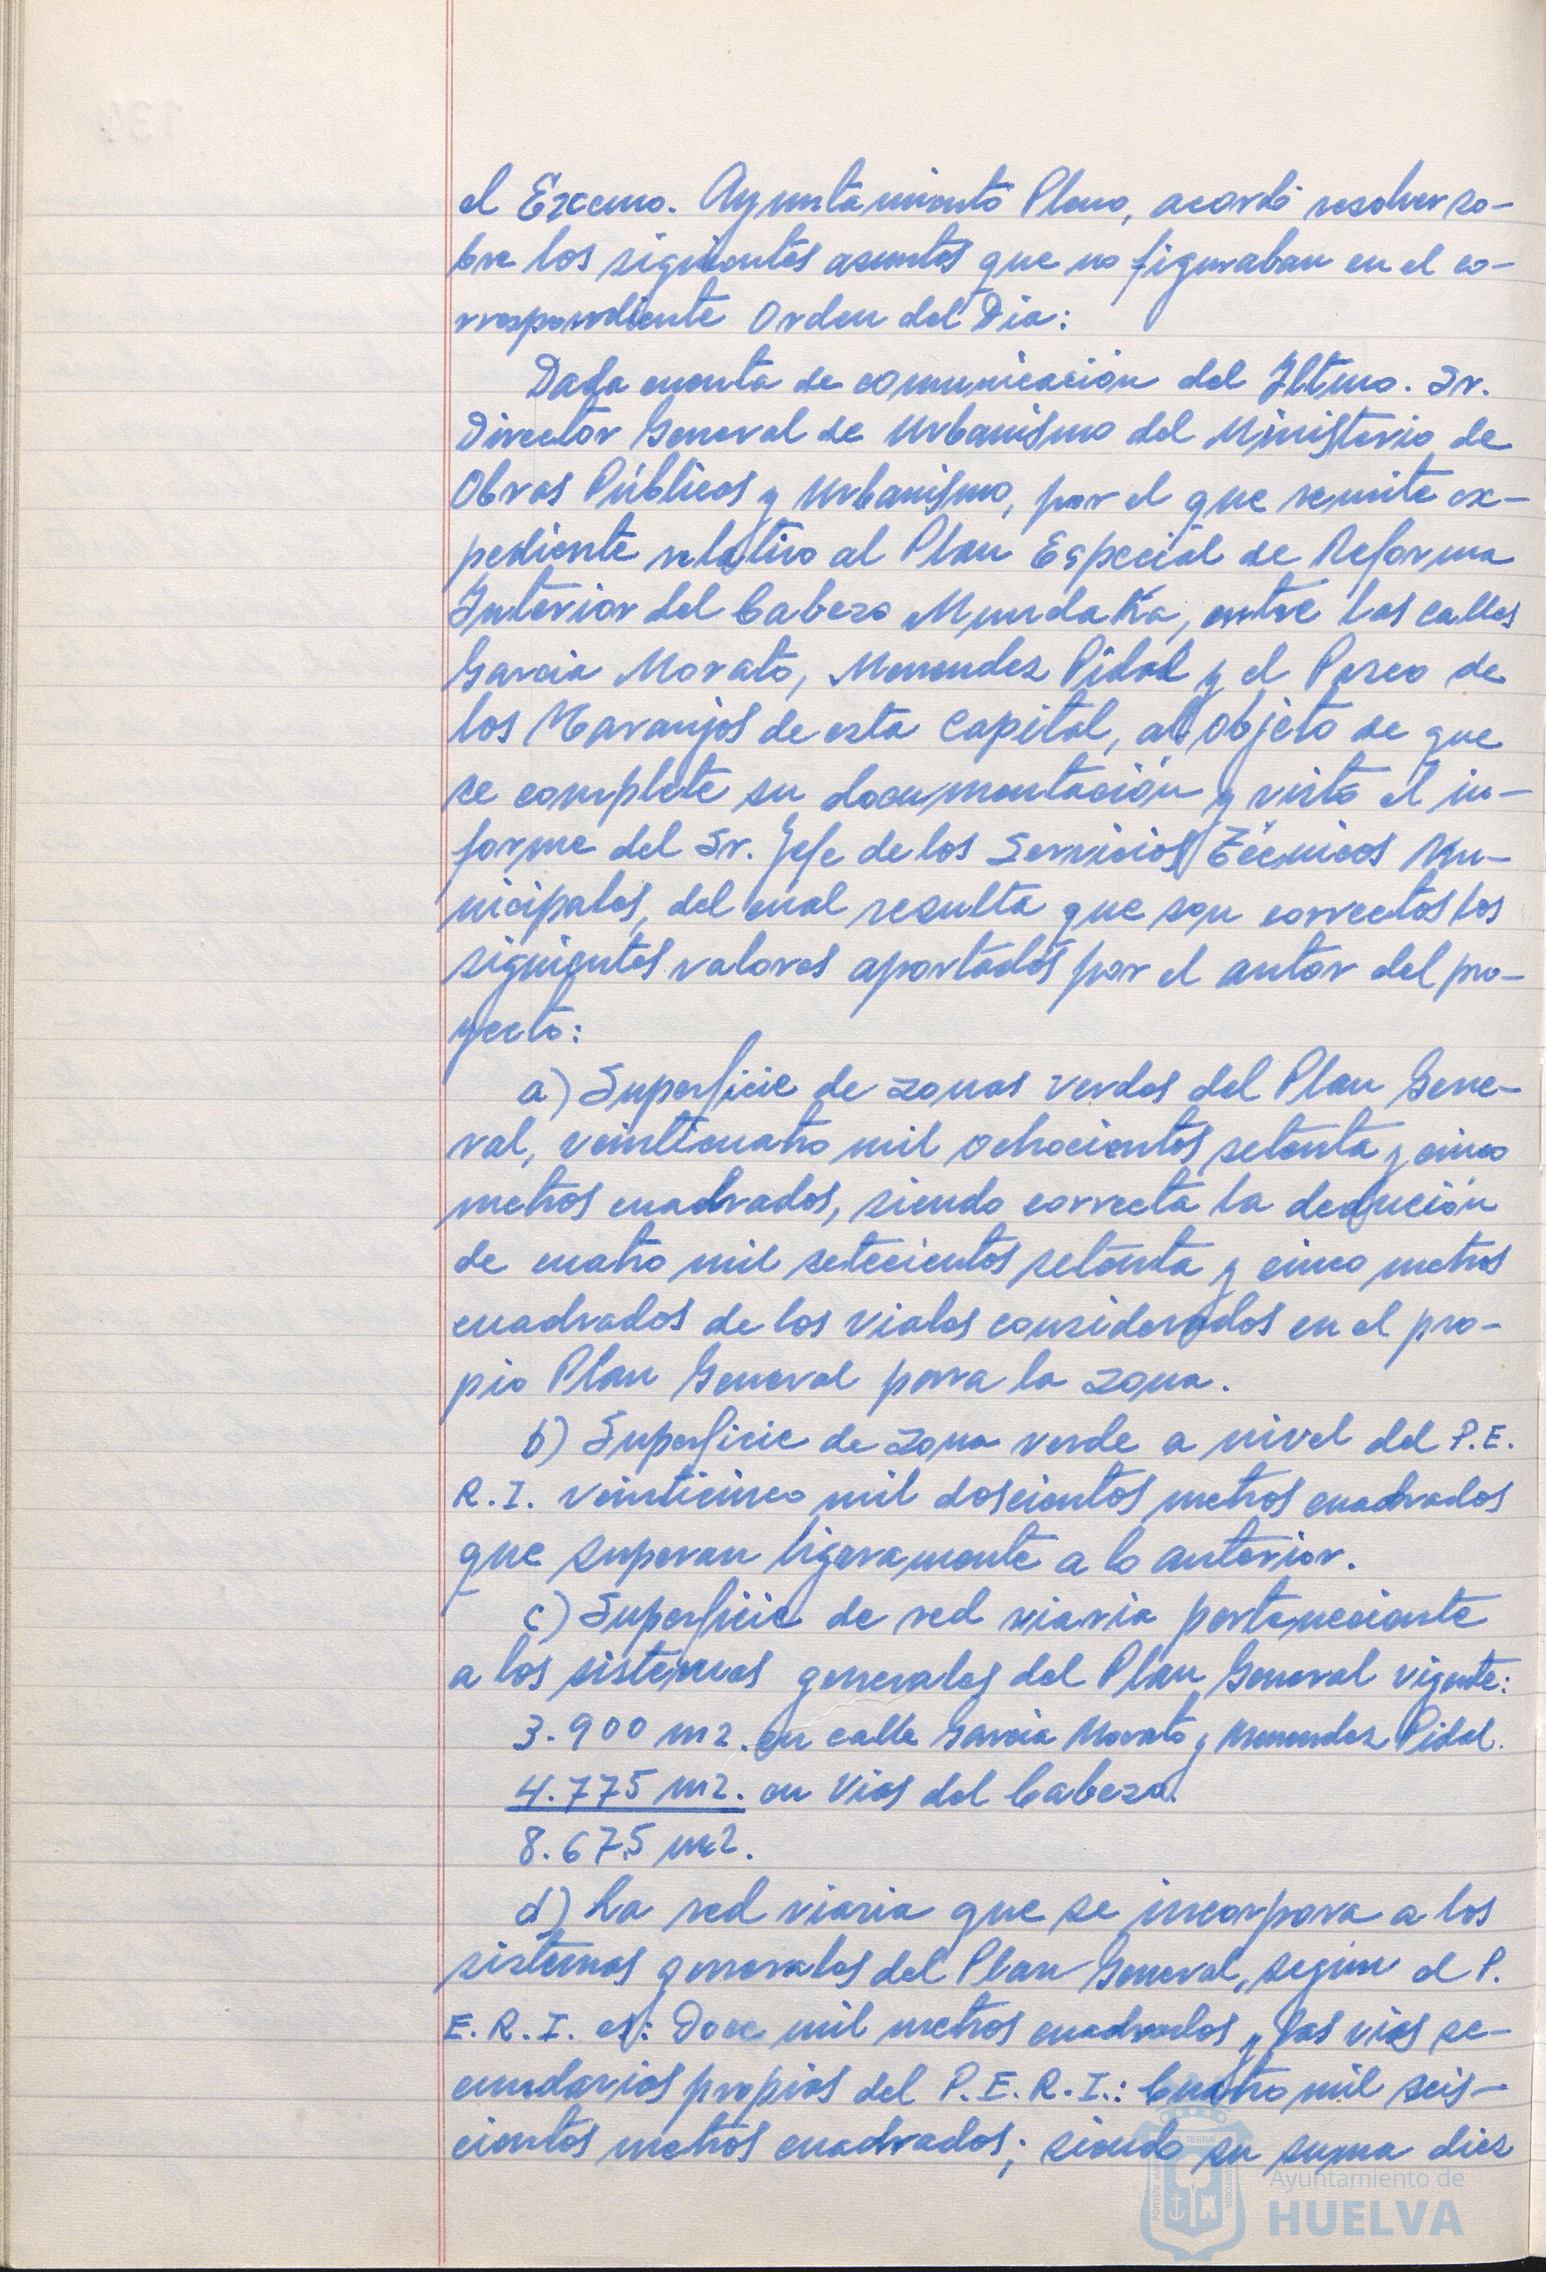 el Excmo. Ayuntamiento Pleno, acordó resolver so-
bre los siguientes asuntos que no figuraban en el co-
rrespondiente Orden del Dia:
Dada cuenta de comunicación del Iltmo. Sr.
Director General de Urbanismo del Ministerio de
Obras Públicas y Urbanismo, por el que remite ex-
pediente relativo al Plan Especial de Reforma
Interior del Cabezo Mundaka, entre las calles
Garcia Morato, Menendez Pidal y el Paseo de
los Naranjos de esta Capital, al objeto de que
se complete su documentación y visto el in-
forme del Sr. Jefe de los Servicios Técnicos Mu-
nicipales, del cual resulta que son correctos los
siguientes valores aportados por el autor del pro-
yecto:
a) Superficie de zonas verdes del Plan Gene-
ral, veinticuatro mil ochocientos setenta y cinco
metros cuadrados, siendo correcta la dedución
de cuatro mil setecientos setenta y cinco metros
cuadrados de los viales considerados en el pro-
pio Plan General para la zona.
b) Superficie de zona verde a nivel del P.E.
R.I. veinticinco mil doscientos metros cuadrados
que superan ligeramente a lo anterior.
c) Superficie de red viaria perteneciente
a los sistemas generales del Plan General vigente:
3.900 m2. en calle Garcia Morato y Menendez Pidal.
4.775 m2. en Vias del Cabezo.
8.675 m2.
d) La red viaria que se incorpora a los
sistemas generales del Plan General, según el P.
E.R.I. es: Doce mil metros cuadrados y las vias se-
cundarias propias del P.E.R.I.: Cuatro mil seis-
cientos metros cuadrados; siendo su suma diez
Ayuntamiento de
HUELVA